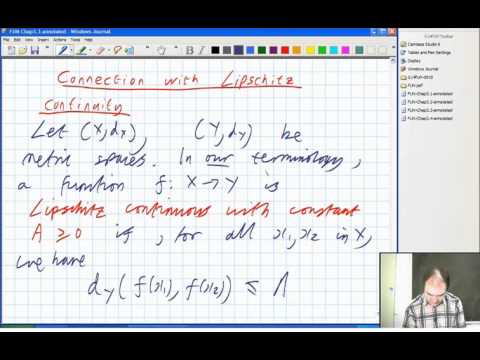 FUN-Chap5.3-annotated - Windows Journal
File Edit View Insert Actions Tools Help
Connection with Lipschitz
Continuity
Let (X,dX), (Y,dY) be
metric spaces. In our terminology,
a function f: X → Y is
Lipschitz continuous with constant
A ≥ 0 if, for all x1, x2 in X,
we have
dY(f(x1), f(x2)) ≤ A
Camtasia Studio 6
Tablet and Pen Settings
Display
Windows Journal
FUN.pdf